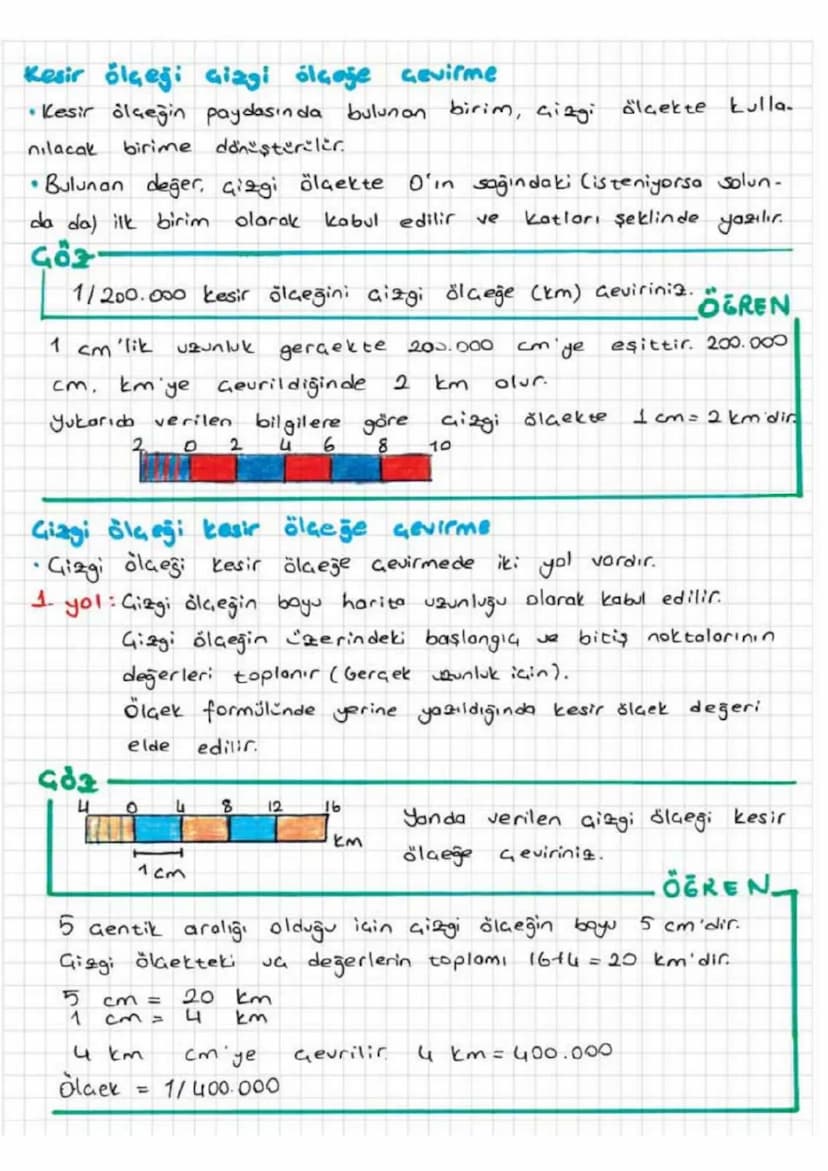 Kesir ölçeği çizgi ölçeğe çevirme
• Kesir ölçeğin paydasında bulunan birim, çizgi ölçekte kulla-
nılacak birime dönüştürülür.
• Bulunan değer, çizgi ölçekte 0'ın sağındaki (isteniyorsa solun-
da da) ilk birim olarak kabul edilir ve katları şeklinde yazılır.
ÇÖZ
1/200.000 kesir ölçeğini çizgi ölçeğe (km) çeviriniz.
ÖĞREN
1 cm'lik uzunluk gerçekte 200.000 cm'ye eşittir. 200.000
cm, km'ye çevrildiğinde 2 km olur.
Yukarıda verilen bilgilere göre çizgi ölçekte 1 cm = 2 km'dir.
2 0 2 4 6 8 10
Çizgi ölçeği kesir ölçeğe çevirme
• Çizgi ölçeği kesir ölçeğe çevirmede iki yol vardır.
1. yol: Çizgi ölçeğin boyu harita uzunluğu olarak kabul edilir.
Çizgi ölçeğin üzerindeki başlangıç ve bitiş noktalarının
değerleri toplanır (Gerçek uzunluk için).
Ölçek formülünde yerine yazıldığında kesir ölçek değeri
elde edilir.
ÇÖZ
4 0 4 8 12 16
km
1 cm
Yanda verilen çizgi ölçeği kesir
ölçeğe çeviriniz.
ÖĞREN
5 çentik aralığı olduğu için çizgi ölçeğin boyu 5 cm'dir.
Çizgi ölçekteki uç değerlerin toplamı 16+4 = 20 km'dir.
5 cm = 20 km
1 cm = 4 km
4 km cm'ye çevrilir. 4 km = 400.000
Ölçek = 1/400.000